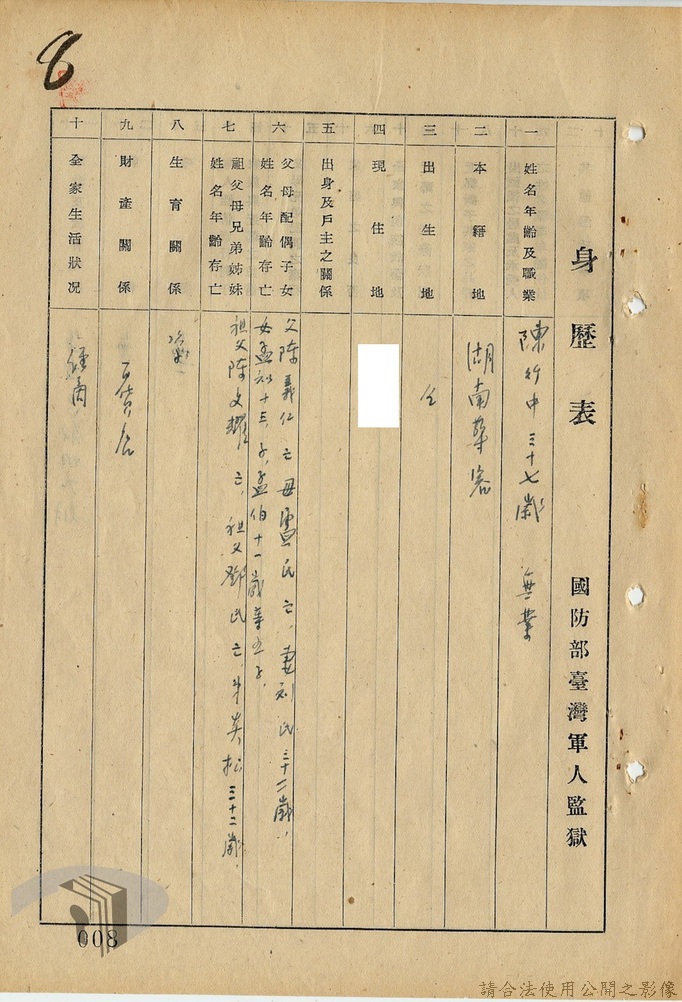 8
身歷表
國防部臺灣軍人監獄
一 姓名年齡及職業
陳行中 三十七歲 無業
二 本籍地
湖南華容
三 出生地
仝
四 現住地
五 出身及戶主之關係
六 父母配偶子女姓名年齡存亡
父陳義仁亡母盧氏亡,妻刘氏三十二歲,
女孟
十三,子,孟伯十一歲
七 祖父母兄弟姊妹姓名年齡存亡
祖父陳文耀亡,祖父鄧氏亡,
松三十二歲
八 生育關係
九 財產關係
十 全家生活狀况
經商
008
請合法使用公開之影像